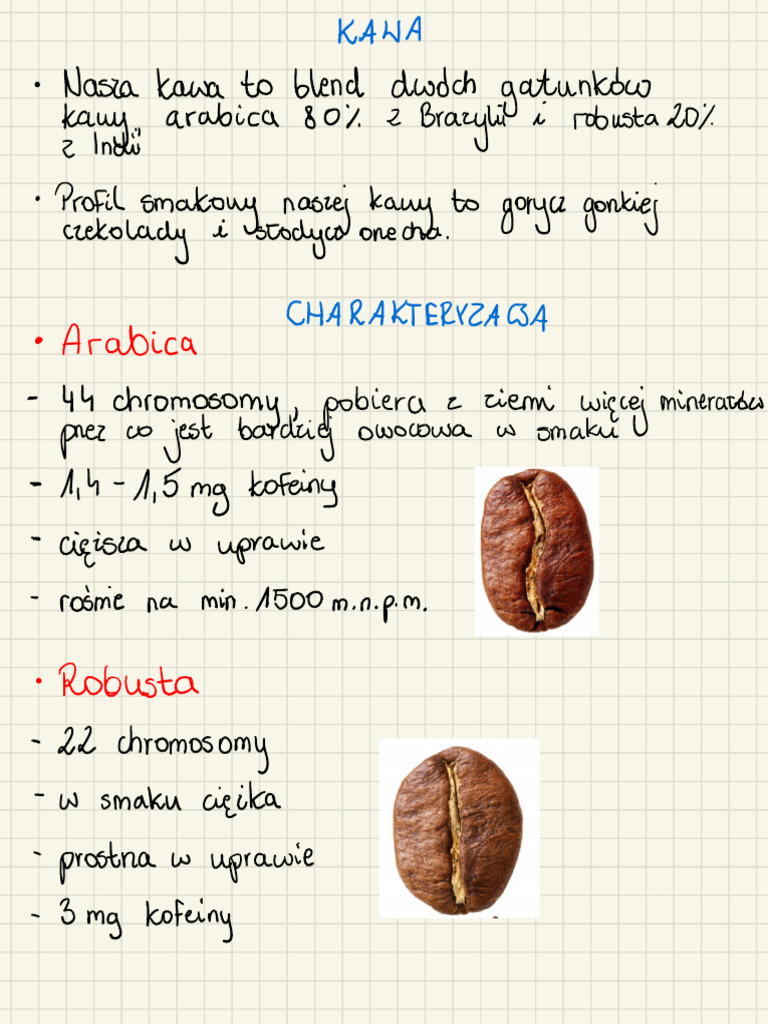 KAWA
• Nasza kawa to blend dwóch gatunków
kawy, arabica 80% z Brazylii i robusta 20%
z Indii
• Profil smakowy naszej kawy to gorycz gorzkiej
czekolady i słodycz orzecha.
CHARAKTERYZACJA
• Arabica
- 44 chromosomy, pobiera z ziemi więcej minerałów
przez co jest bardziej owocowa w smaku
- 1,4 - 1,5 mg kofeiny
- cięższa w uprawie
- rośnie na min. 1500 m.n.p.m.
• Robusta
- 22 chromosomy
- w smaku ciężka
- prostrza w uprawie
- 3 mg kofeiny